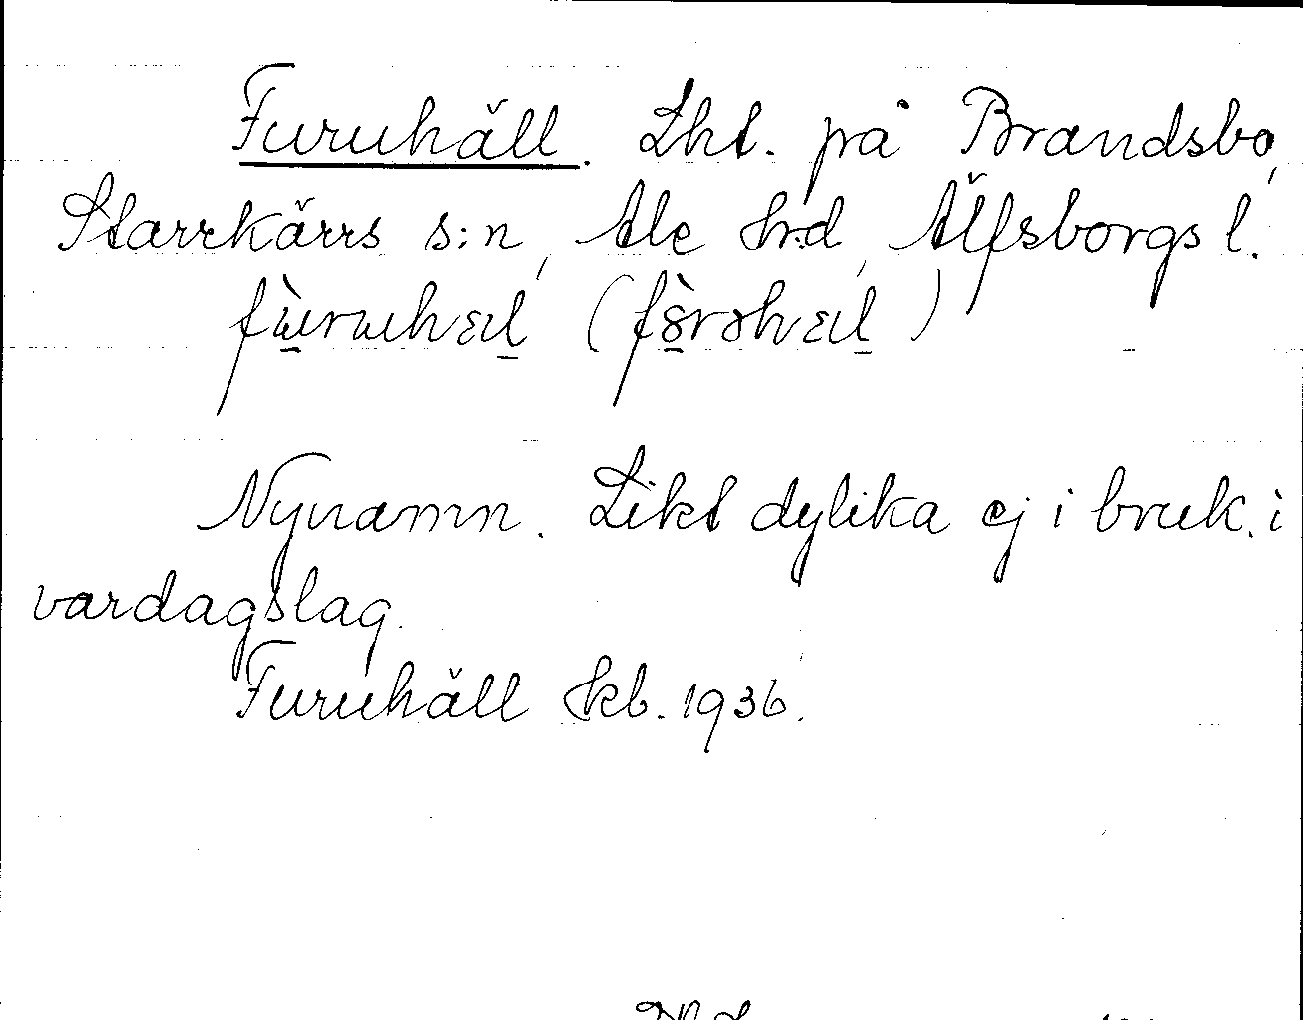 Furuhäll. Lht. på Brandsbo,
Starrkärrs s:n, Ale h:d, Älfsborgs l.
fùruhɛıl (fòrɔhɛıl)
Nynamn. Likt dylika ej i bruk. i
vardagslag.
Furuhäll Skb. 1936.